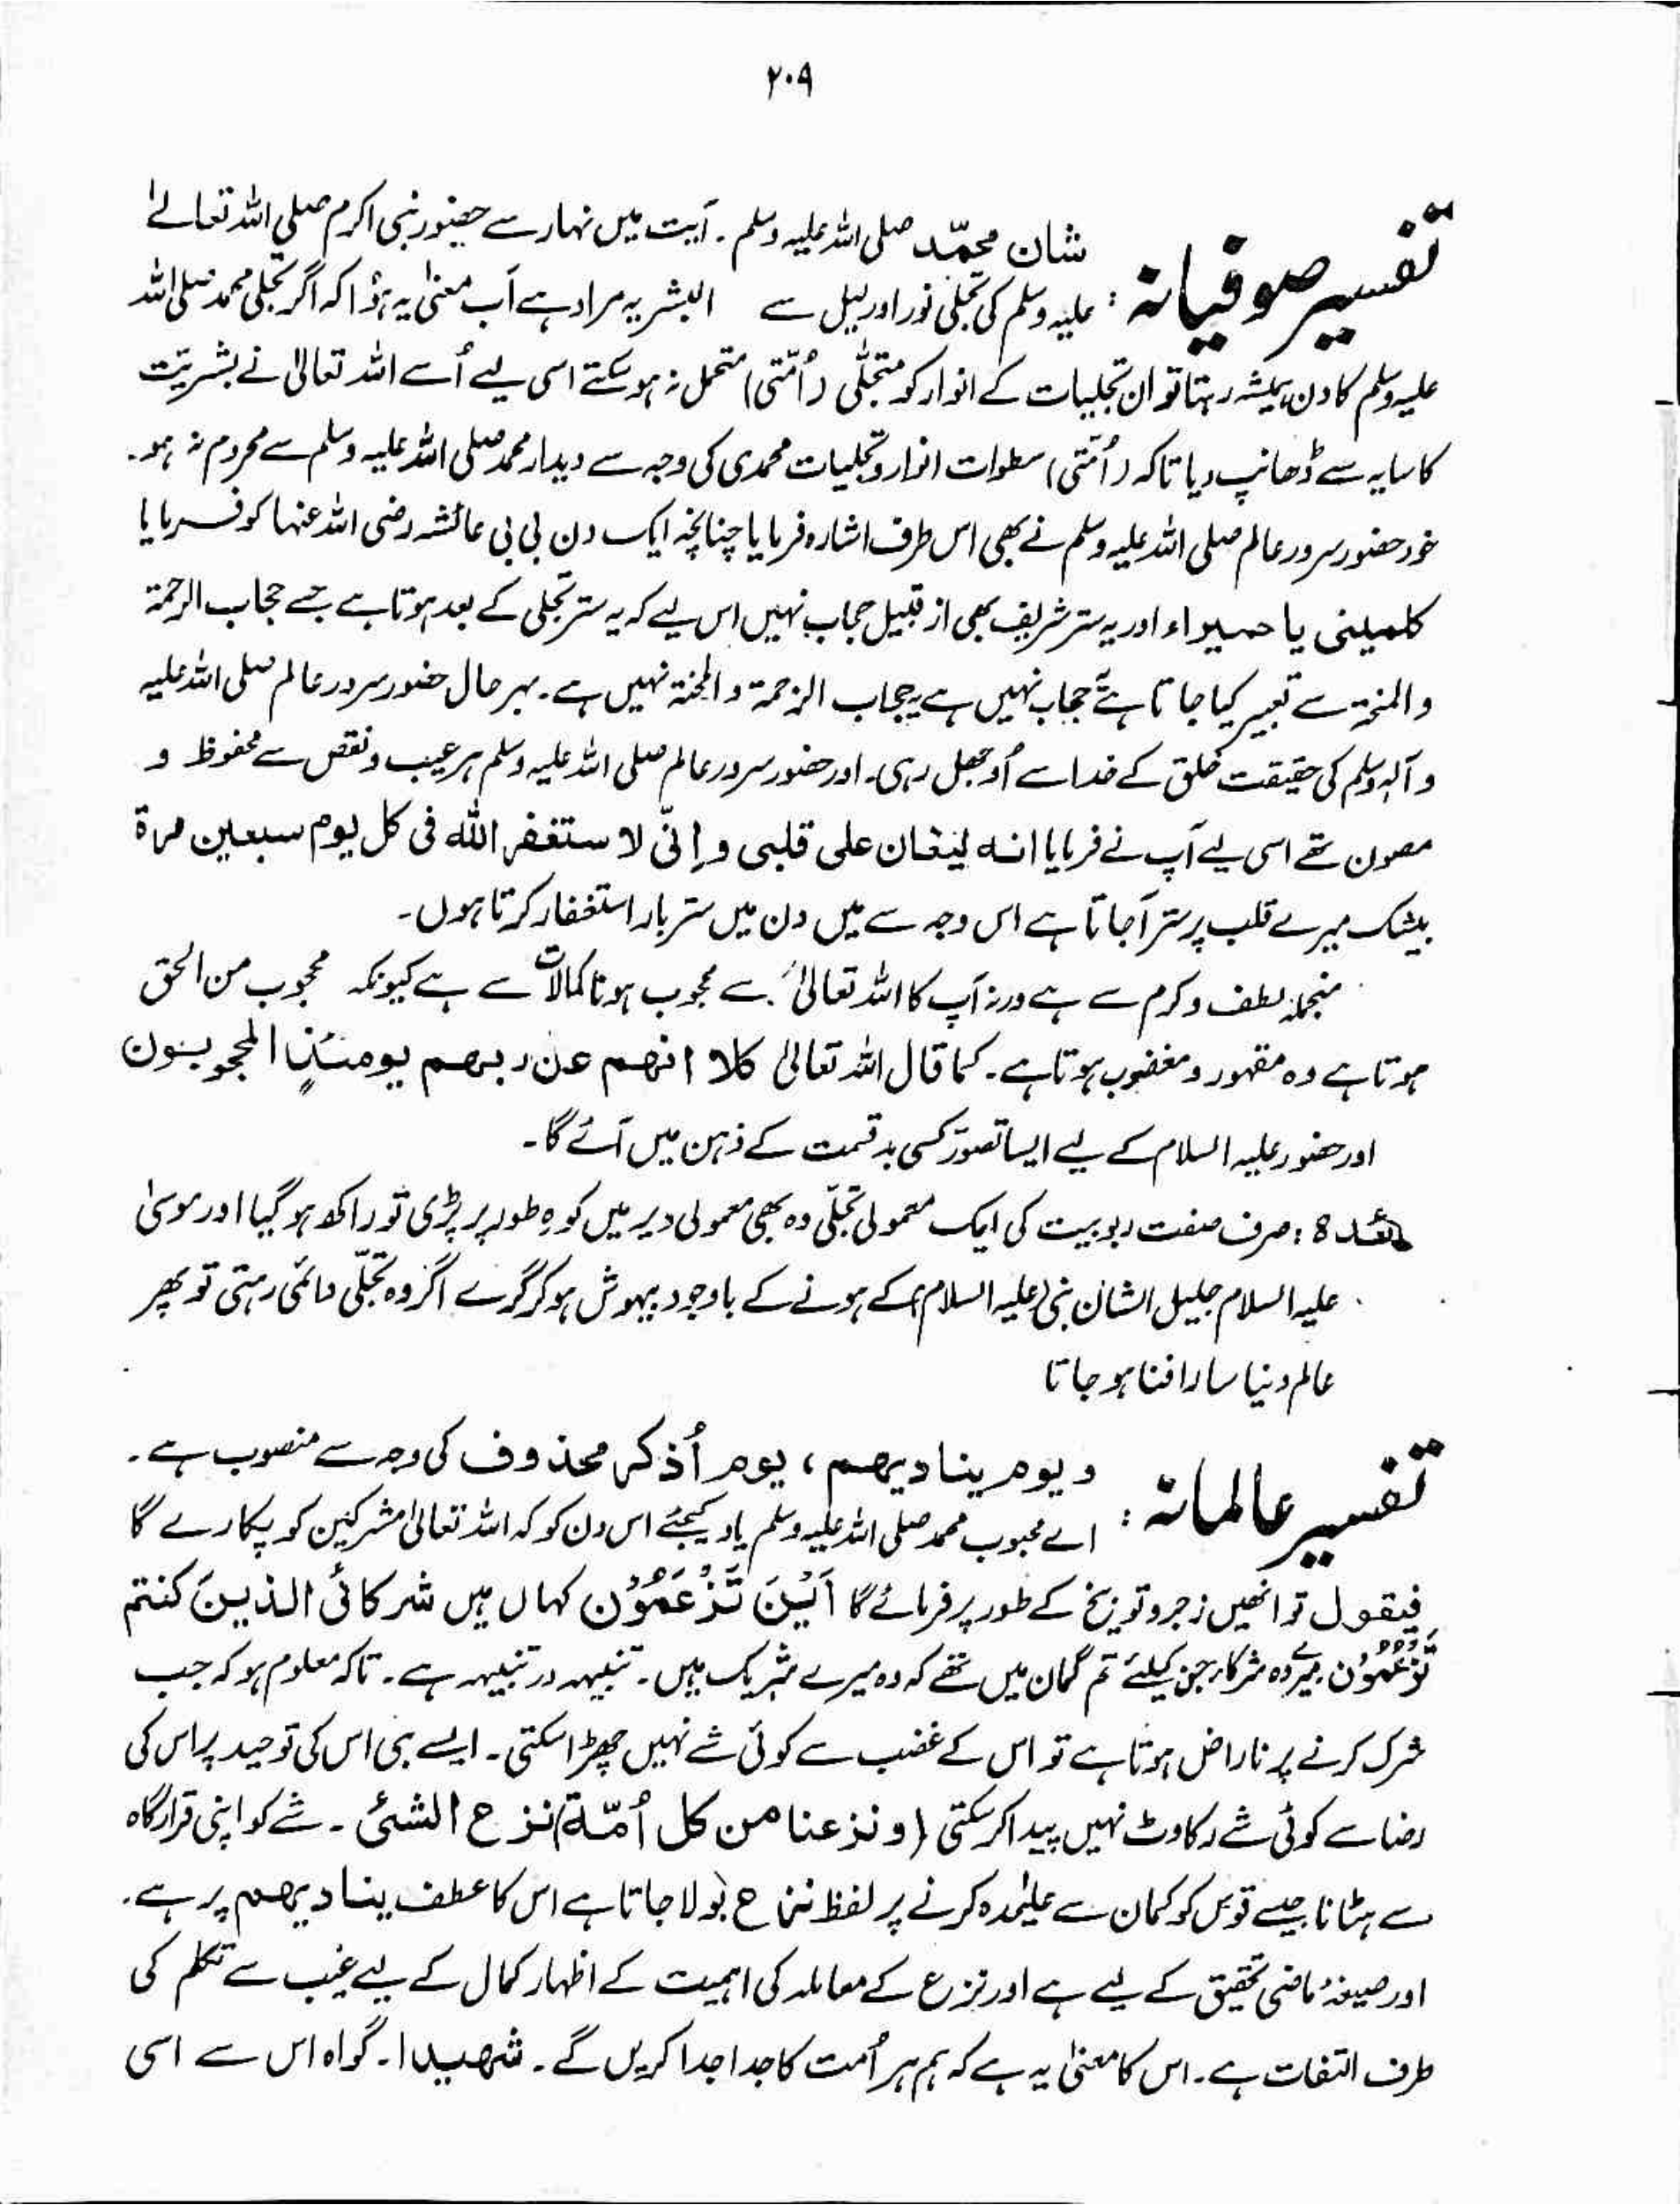 ۲۰۹
تفسیر صوفیانہ : شان محمّد صلی اللہ علیہ وسلم ۔ آیت میں نہار سے حضور نبی اکرم صلی اللہ تعالےٰ
علیہ وسلم کی تجلی نور اور لیل سے البشریہ مراد ہے اَب معنیٰ یہ ہؤا کہ اگر تجلی محمد صلی اللہ
علیہ وسلم کا دن ہمیشہ رہتا تو ان تجلیات کے انوار کو متجلّی (اُمّتی) متحمل نہ ہو سکتے اسی لیے اُسے اللہ تعالیٰ نے بشریّت
کا سایہ سے ڈھانپ دیا تاکہ (اُمّتی) سطوات انوار و تجلیات محمدی کی وجہ سے دیدار محمد صلی اللہ علیہ وسلم سے محروم نہ ہو۔
خود حضور سرور عالم صلی اللہ علیہ وسلم نے بھی اس طرف اشارہ فرمایا چنانچہ ایک دن بی بی عائشہ رضی اللہ عنہا کو فرمایا
کلمینی یا حمیراء اور یہ ستر شریف بھی از قبیل حجاب نہیں اس لیے کہ یہ ستر تجلی کے بعد ہوتا ہے جسے حجاب الرحمۃ
و المنحۃ سے تعبیر کیا جاتا ہے حجاب نہیں ہے یہ حجاب الزحمۃ و المحنۃ نہیں ہے۔ بہر حال حضور سرور عالم صلی اللہ علیہ
و آلہ وسلم کی حقیقت خلق کے خدا سے اُوجھل رہی۔ اور حضور سرور عالم صلی اللہ علیہ وسلم ہر عیب و نقص سے محفوظ و
مصون تھے اسی لیے آپ نے فرمایا انہ لیغان علی قلبی و اِنّی لا ستغفر اللہ فی کل یوم سبعین مرۃ
بیشک میرے قلب پر ستر آجاتا ہے اس وجہ سے میں دن میں ستر بار استغفار کرتا ہوں۔
منجملہ لطف و کرم سے ہے ورنہ آپ کا اللہ تعالیٰ سے محجوب ہونا کمالات سے ہے کیونکہ محجوب من الحق
ہوتا ہے وہ مقہور و مغضوب ہوتا ہے۔ کما قال اللہ تعالیٰ کلا انھم عن ربھم یومئذٍ المحجوبون
اور حضور علیہ السلام کے لیے ایسا تصوّر کسی بدقسمت کے ذہن میں آئے گا۔
فائدہ : صرف صفت ربوبیت کی ایک معمولی تجلّی وہ بھی معمولی دیر میں کوہِ طور پر پڑی تو راکھ ہو گیا اور موسیٰ
علیہ السلام جلیل الشان نبی (علیہ السلام) کے ہونے کے باوجود بیہوش ہو کر گرے اگر وہ تجلّی دائمی رہتی تو پھر
عالم دنیا سارا فنا ہو جاتا
تفسیر عالمانہ : و یوم ینادیھم ، یوم اُذکر محذوف کی وجہ سے منصوب ہے۔
اے محبوب محمد صلی اللہ علیہ وسلم یاد کیجئے اس دن کو کہ اللہ تعالیٰ مشرکین کو پکارے گا
فیقول تو انھیں زجر و توبیخ کے طور پر فرمائے گا اَیْنَ تَزْعَمُوْن کہاں ہیں شرکائی الذینَ کنتم
تَزْعَمُوْن میرے وہ شرکاء جن کیلئے تم گمان میں تھے کہ وہ میرے شریک ہیں۔ تنبیہہ در تنبیہہ ہے۔ تاکہ معلوم ہو کہ جب
شرک کرنے پر ناراض ہوتا ہے تو اس کے غضب سے کوئی شے نہیں چھڑا سکتی۔ ایسے ہی اس کی توحید پر اس کی
رضا سے کوئی شے رکاوٹ نہیں پیدا کر سکتی (و نزعنا من کل اُمّۃ) نزع الشئی ۔ شے کو اپنی قرارگاہ
سے ہٹانا جیسے قوس کو کمان سے علیٰحدہ کرنے پر لفظ نزع بولا جاتا ہے اس کا عطف ینادیھم پر ہے۔
اور صیغۂ ماضی تحقیق کے لیے ہے اور نزع کے معاملہ کی اہمیت کے اظہار کمال کے لیے غیب سے تکلم کی
طرف التفات ہے۔ اس کا معنیٰ یہ ہے کہ ہم ہر اُمت کا جدا جدا کریں گے۔ شھیدا۔ گواہ اس سے اسی